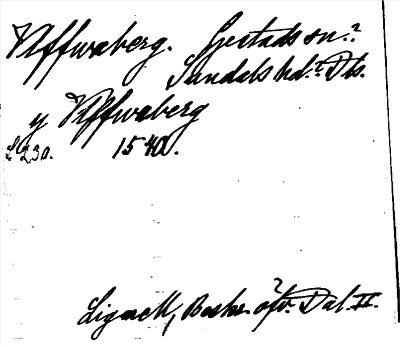 Ulffwaberg. Gestads sn.?
Sundals hd.? Dls.
y Ulffwaberg
L 230. 1540.
Lignell, Beskr. ofv. Dal. II.